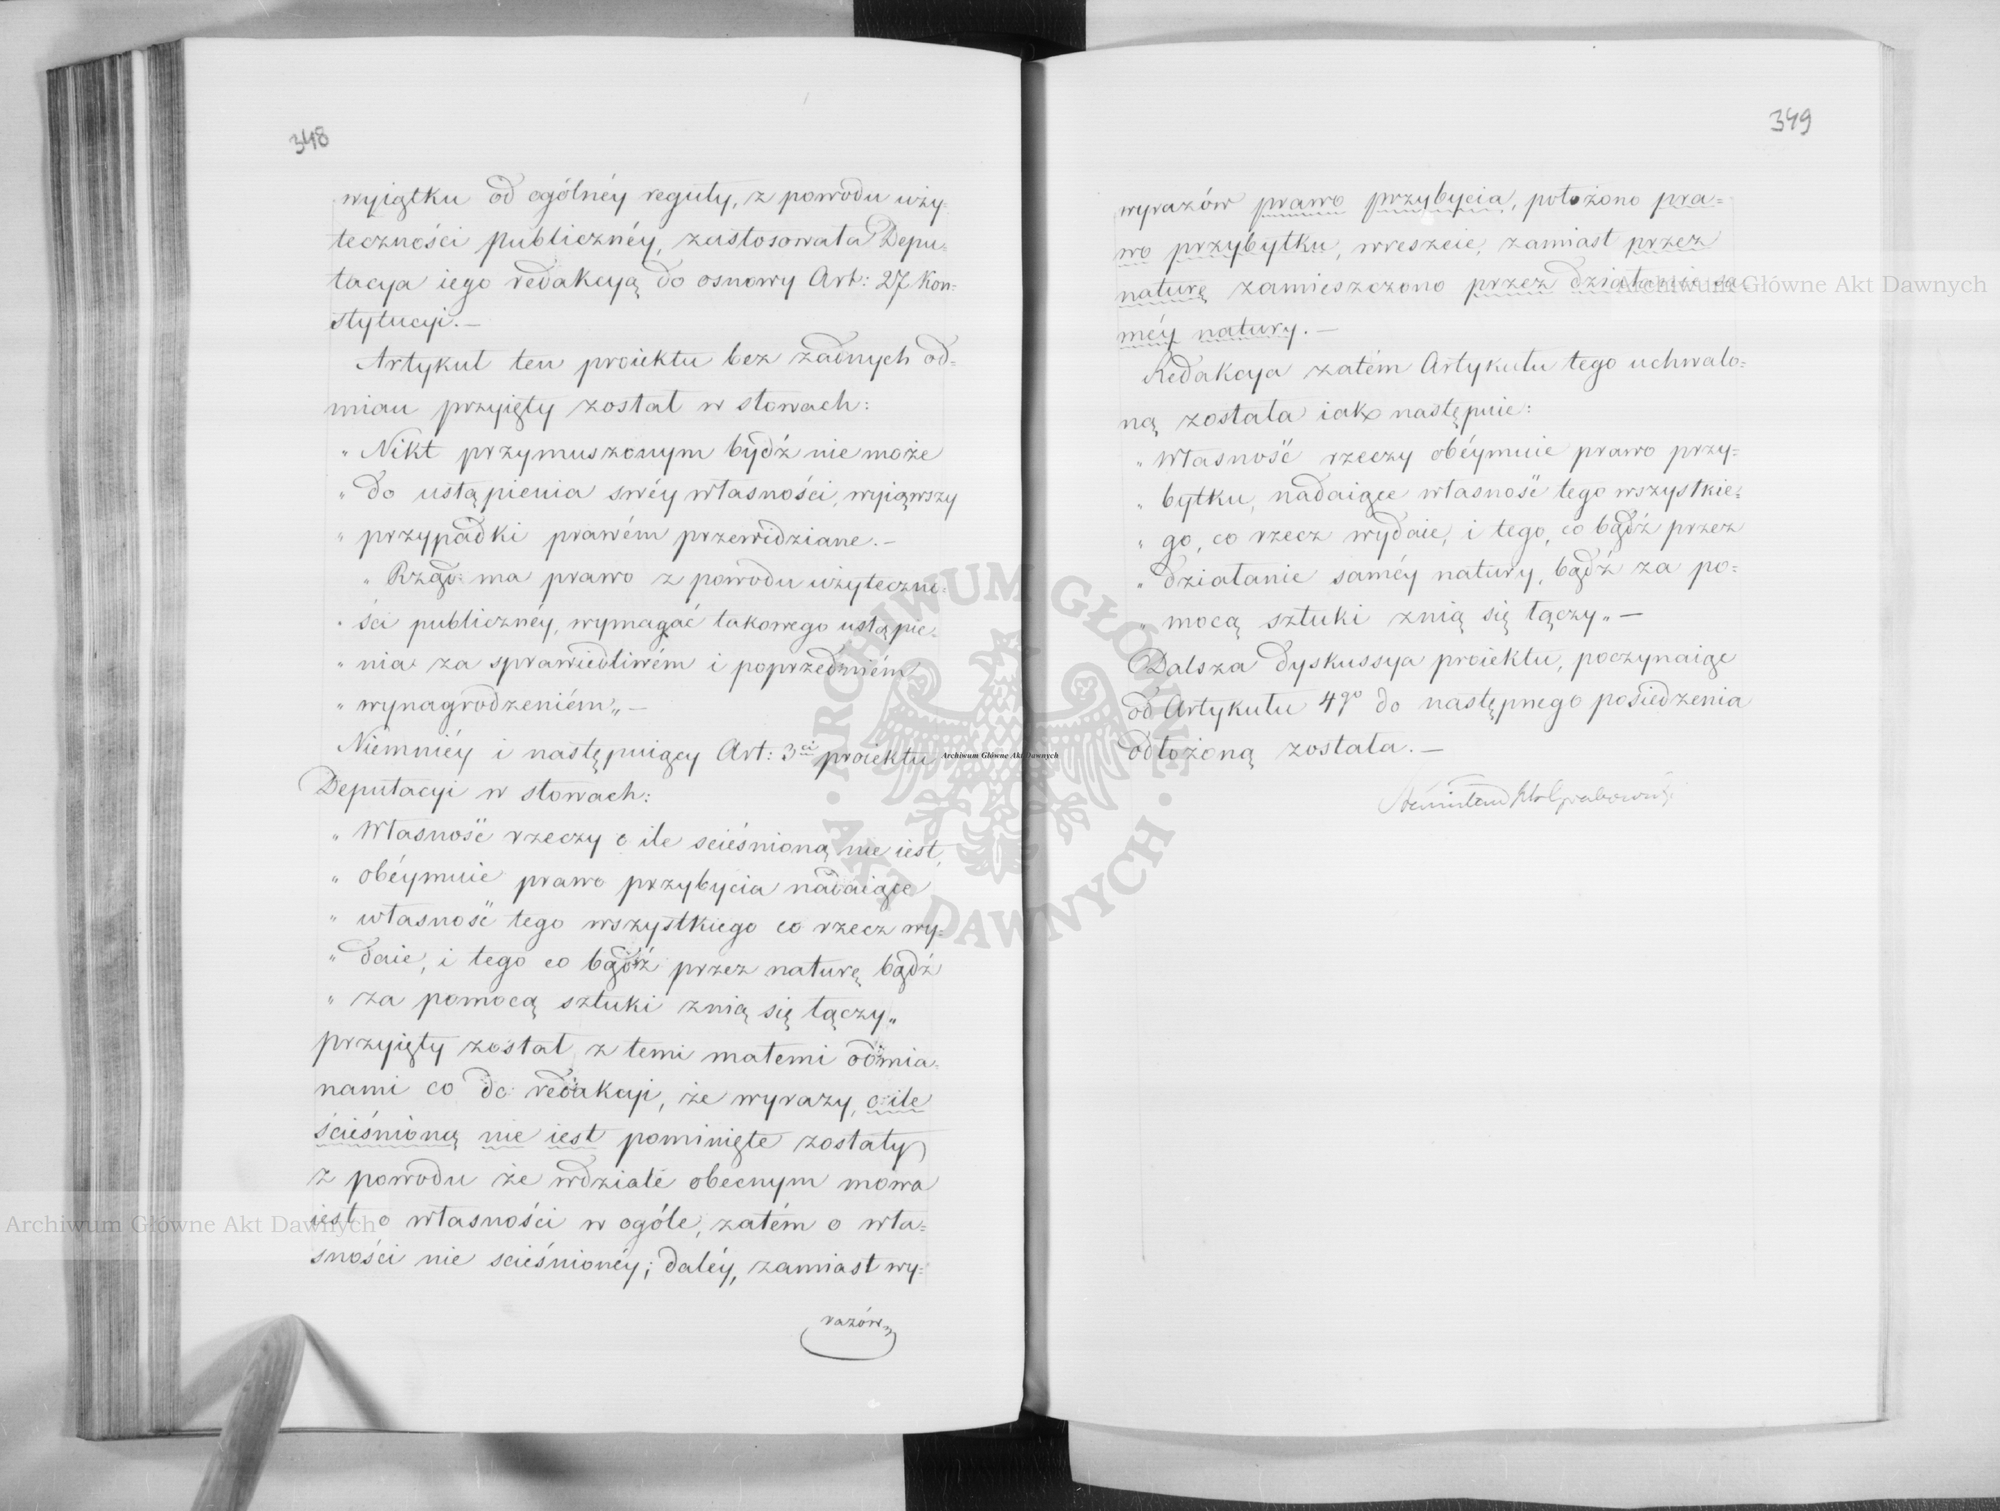 348
wyiątku od ogólnéy reguły, z powodu uży-
teczności publicznéy, zastosowała Depu-
tacya iego redakcyą do osnowy Art: 27 Kon-
stytucyi.—
Artykuł ten proiektu bez żadnych od-
mian przyięty został w słowach:
„ Nikt przymuszonym bydź nie może
„ do ustąpienia swéy własności, wyiąwszy
„ przypadki prawém przewidziane.—
„ Rząd ma prawo z powodu użyteczno-
„ ści publicznéy, wymagać takowego ustąpie-
„ nia za sprawiedliwém i poprzedniém
„ wynagrodzeniém„ —
Niemniéy i następuiący Art: 3ci proiektu
Deputacyi w słowach:
„ Własność rzeczy o ile scieśnioną nie iest,
„ obéymuie prawo przybycia nadaiące
„ własność tego wszystkiego co rzecz wy-
„ daie, i tego co bądź przez naturę bądź
„ za pomocą sztuki znią się łączy„
przyięty został z temi małemi odmia-
nami co do redakcyi, że wyrazy, o ile
ścieśnioną nie iest pominięte zostały
z powodu że wdziale obecnym mowa
iest o własności w ogóle, zatém o wła-
sności nie scieśnionéy; daléy, zamiast wy-
razów
349
wyrazów prawo przybycia, położono pra-
wo przybytku, wreszcie, zamiast przez
naturę zamieszczono przez działanie sa-
méy natury.—
Redakcya zatém Artykułu tego uchwalo-
ną została iako następuie:
„ Własność rzeczy obéymuie prawo przy-
„ bytku, nadaiące własność tego wszystkie-
„ go, co rzecz wydaie, i tego, co bądź przez
„ działanie saméy natury, bądź za po-
„ mocą sztuki znią się łączy„—
Dalsza dyskussya proiektu, poczynaiąc
od Artykułu 4go do następnego posiedzenia
odłożoną została.—
Grabowski
Archiwum Główne Akt Dawnych
Archiwum Główne Akt Dawnych
Archiwum Główne Akt Dawnych
ARCHIWUM GŁÓWNE AKT DAWNYCH